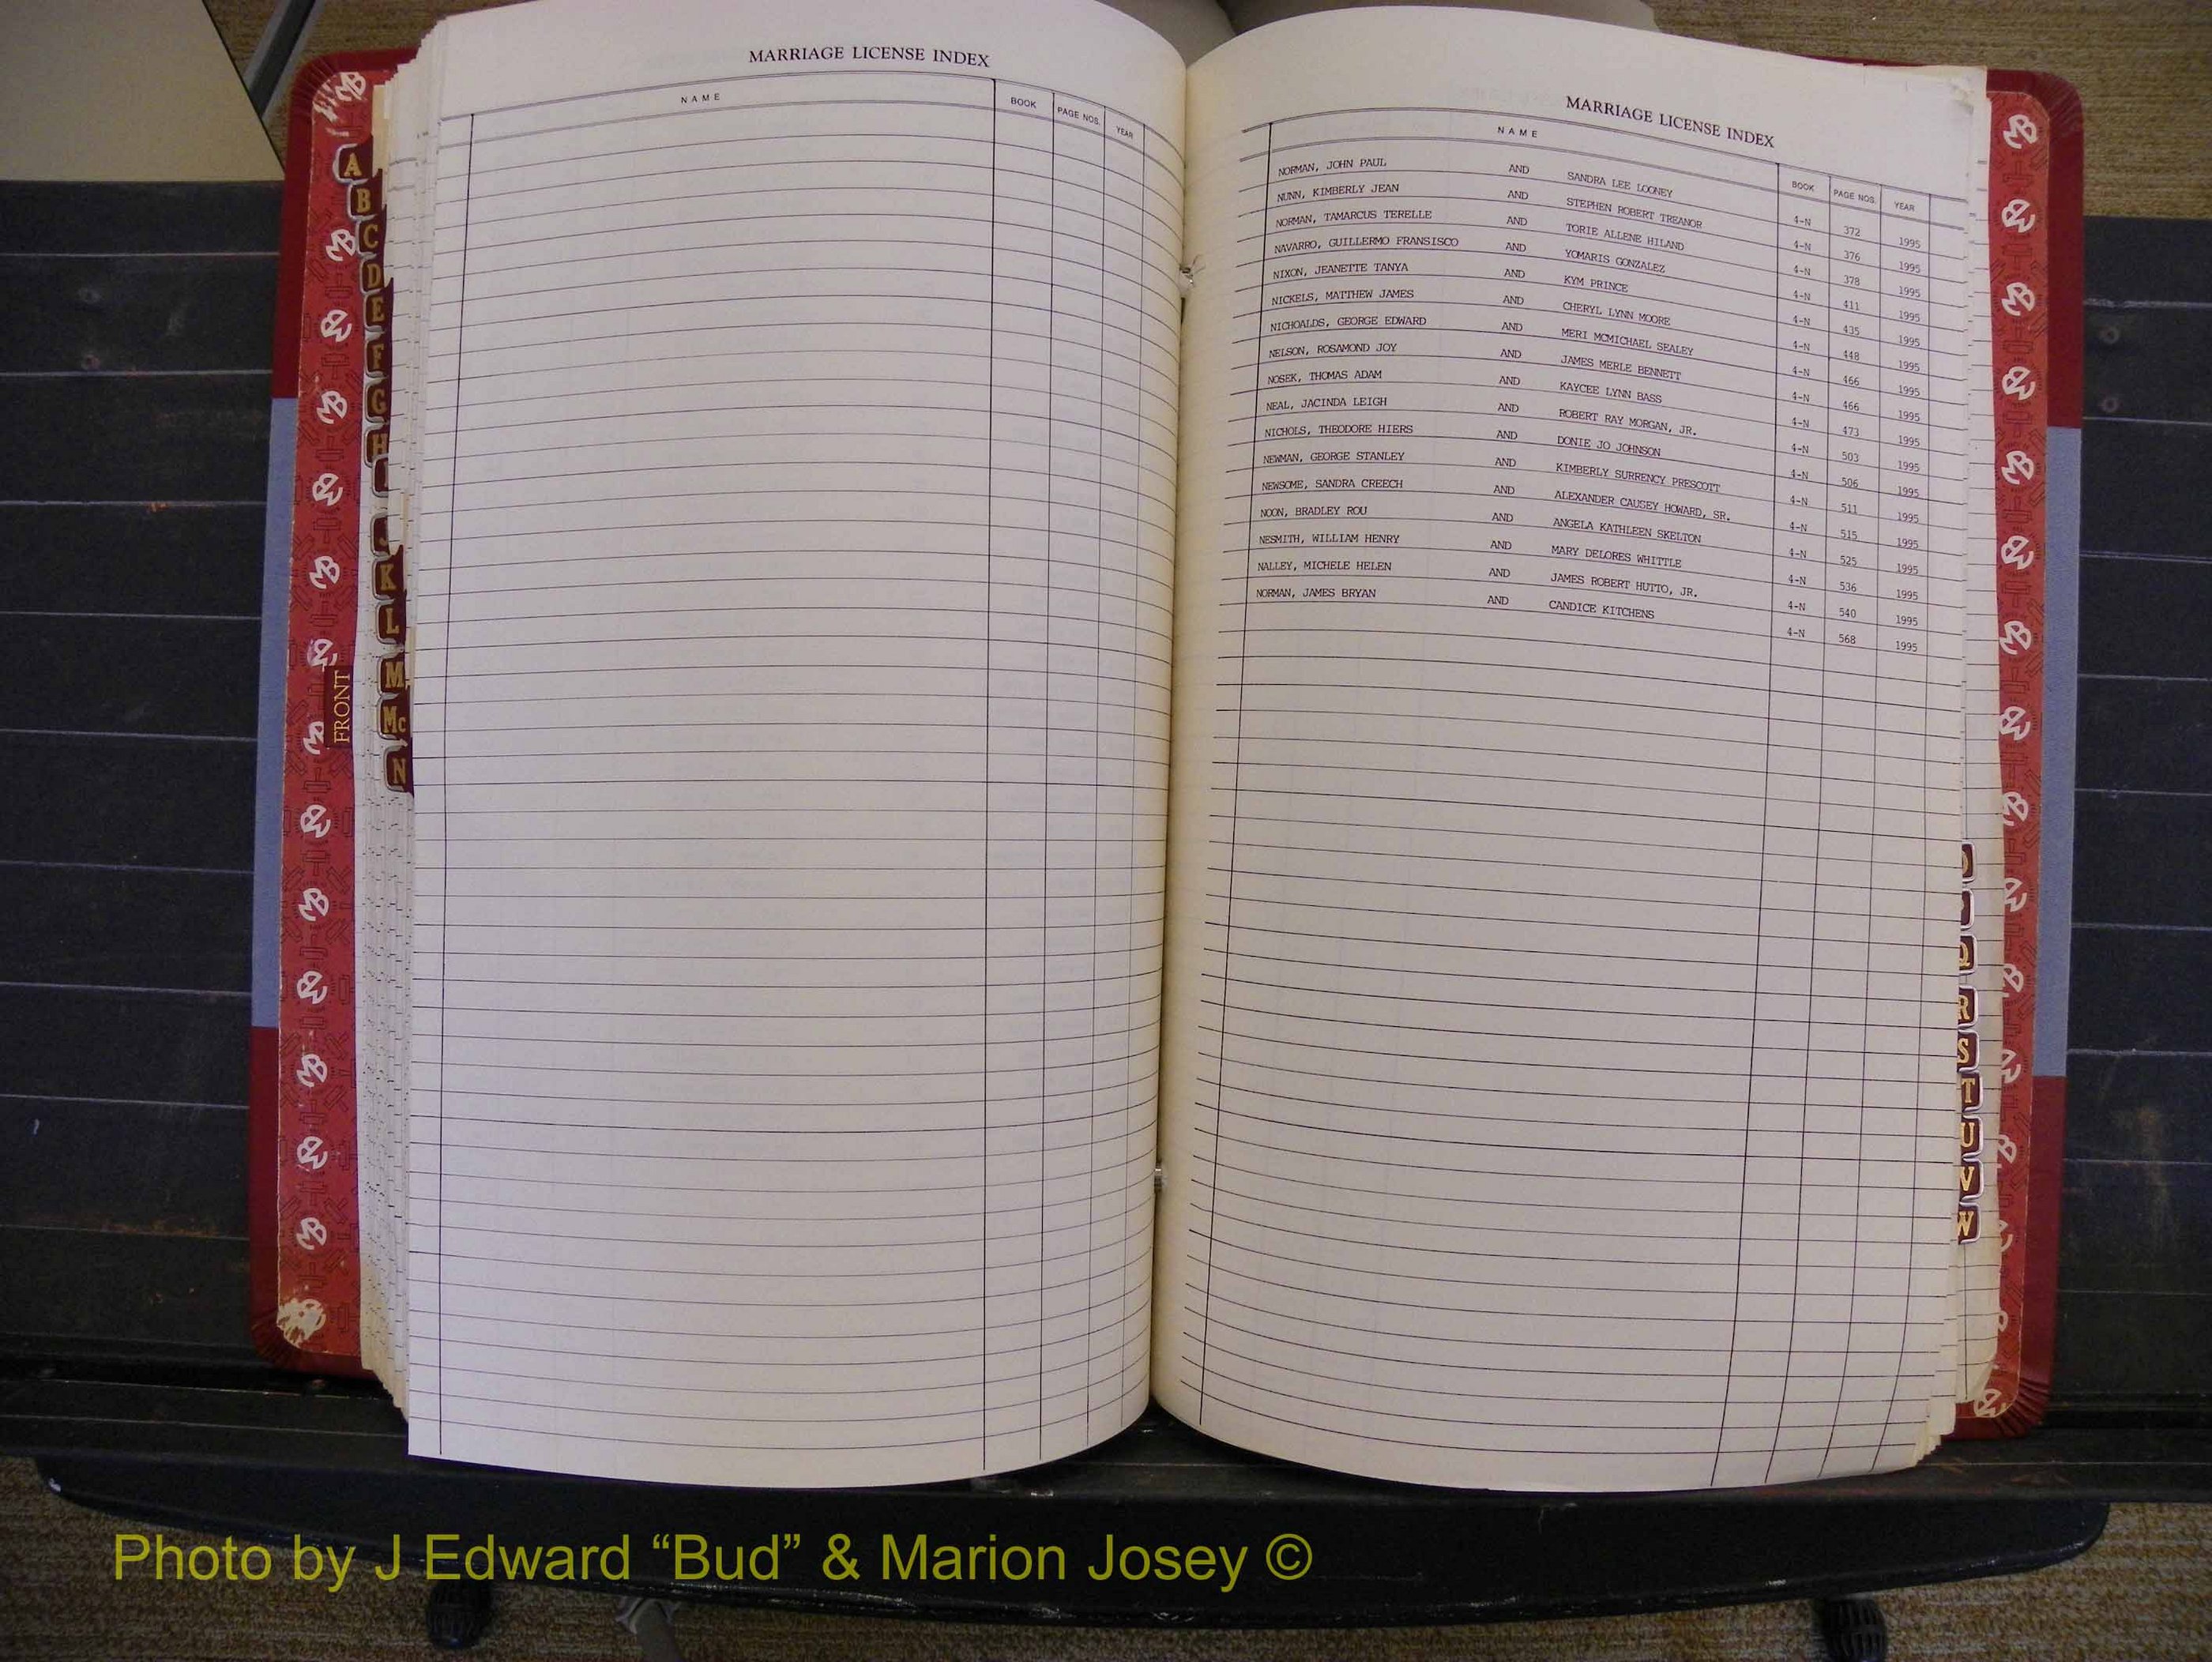 MARRIAGE LICENSE INDEX
NAME BOOK PAGE NOS. YEAR
MARRIAGE LICENSE INDEX
NAME BOOK PAGE NOS. YEAR
NORMAN, JOHN PAUL AND SANDRA LEE LOONEY 4-N 372 1995
NUNN, KIMBERLY JEAN AND STEPHEN ROBERT TREANOR 4-N 376 1995
NORMAN, TAMARCUS TERELLE AND TORIE ALLENE HILAND 4-N 378 1995
NAVARRO, GUILLERMO FRANSISCO AND YOMARIS GONZALEZ 4-N 411 1995
NIXON, JEANETTE TANYA AND KYM PRINCE 4-N 435 1995
NICKELS, MATTHEW JAMES AND CHERYL LYNN MOORE 4-N 448 1995
NICHOALDS, GEORGE EDWARD AND MERI MCMICHAEL SEALEY 4-N 466 1995
NELSON, ROSAMOND JOY AND JAMES MERLE BENNETT 4-N 466 1995
NOSEK, THOMAS ADAM AND KAYCEE LYNN BASS 4-N 473 1995
NEAL, JACINDA LEIGH AND ROBERT RAY MORGAN, JR. 4-N 503 1995
NICHOLS, THEODORE HIERS AND DONIE JO JOHNSON 4-N 506 1995
NEWMAN, GEORGE STANLEY AND KIMBERLY SURRENCY PRESCOTT 4-N 511 1995
NEWSOME, SANDRA CREECH AND ALEXANDER CAUSEY HOWARD, SR. 4-N 515 1995
NOON, BRADLEY ROU AND ANGELA KATHLEEN SKELTON 4-N 525 1995
NESMITH, WILLIAM HENRY AND MARY DELORES WHITTLE 4-N 536 1995
NALLEY, MICHELE HELEN AND JAMES ROBERT HUTTO, JR. 4-N 540 1995
NORMAN, JAMES BRYAN AND CANDICE KITCHENS 4-N 568 1995
A
B
C
D
E
F
G
H
I
J
K
L
M
Mc
N
FRONT
Q
R
S
T
U
V
W
Photo by J Edward “Bud” & Marion Josey ©